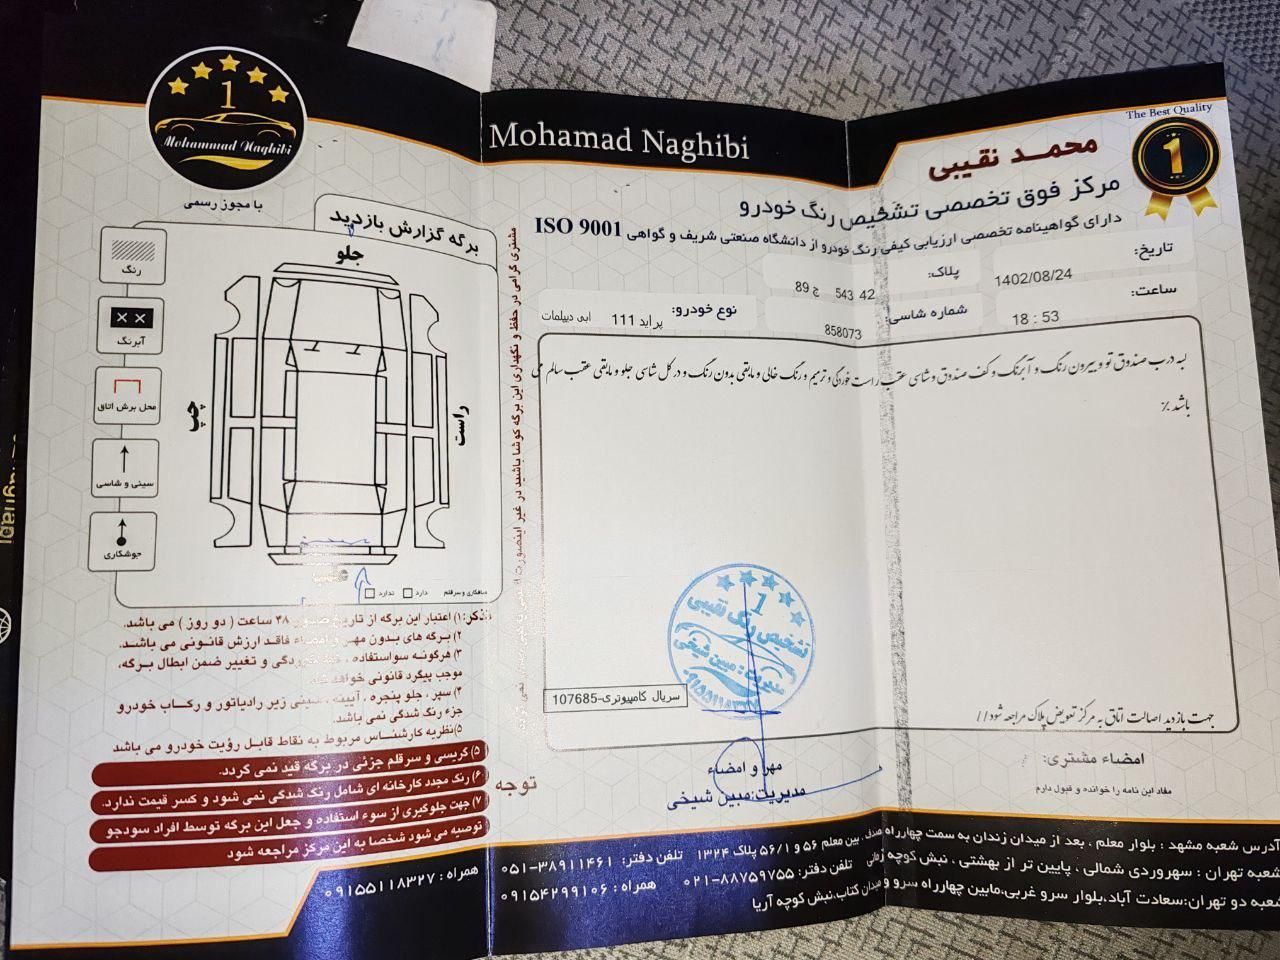 The Best Quality
1
Mohammad Naghibi
با مجوز رسمی
Mohamad Naghibi
محمد نقیبی
مرکز فوق تخصصی تشخیص رنگ خودرو
دارای گواهینامه تخصصی ارزیابی کیفی رنگ خودرو از دانشگاه صنعتی شریف و گواهی ISO 9001
تاریخ: 1402/08/24
پلاک: 42 543 ج 89
ساعت: 18 : 53
شماره شاسی: 858073
نوع خودرو: پراید 111 آبی دیپلمات
لبه درب صندوق تو و بیرون رنگ و آبرنگ و کف صندوق و شاسی عقب راست خوردگی و ترمیم و رنگ خالی و مابقی بدون رنگ و در کل شاسی جلو و مابقی عقب سالم می
باشد %
جهت بازدید اصالت اتاق به مرکز تعویض پلاک مراجعه شود //
سریال کامپیوتری-107685
1
تشخیص رنگ نقیبی
مدیریت: مبین شیخی
۰۹۱۵۵۱۱۸۳۲۷
امضاء مشتری:
مفاد این نامه را خوانده و قبول دارم
مهر و امضاء
مدیریت:مبین شیخی
برگه گزارش بازدید
رنگ
آبرنگ
محل برش اتاق
سینی و شاسی
جوشکاری
جلو
چپ
راست
عقب
صافکاری و سرقلم دارد ندارد
مشتری گرامی در حفظ و نگهداری این برگه کوشا باشید در غیر اینصورت
تذکر:۱) اعتبار این برگه از تاریخ صدور ۴۸ ساعت ( دو روز ) می باشد.
۲) برگه های بدون مهر و امضاء فاقد ارزش قانونی می باشد.
۳) هرگونه سواستفاده ، خط خوردگی و تغییر ضمن ابطال برگه،
موجب پیگرد قانونی خواهد شد.
۴) سپر ، جلو پنجره ، آیینه ، سینی زیر رادیاتور و رکاب خودرو
جزء رنگ شدگی نمی باشد.
۵)نظریه کارشناس مربوط به نقاط قابل رؤیت خودرو می باشد
توجه
۵) گریسی و سرقلم جزئی در برگه قید نمی گردد.
۶) رنگ مجدد کارخانه ای شامل رنگ شدگی نمی شود و کسر قیمت ندارد.
۷) جهت جلوگیری از سوء استفاده و جعل این برگه توسط افراد سودجو
توصیه می شود شخصا به این مرکز مراجعه شود
آدرس شعبه مشهد : بلوار معلم ، بعد از میدان زندان به سمت چهارراه صدف ، بین معلم ۵۶ و ۵۶/۱ پلاک ۱۳۲۴ تلفن دفتر: ۰۵۱-۳۸۹۱۱۴۶۱
شعبه تهران : سهروردی شمالی ، پایین تر از بهشتی ، نبش کوچه زمانی تلفن دفتر: ۰۲۱-۸۸۷۵۹۷۵۵ همراه : ۰۹۱۵۴۲۹۹۱۰۶
شعبه دو تهران:سعادت آباد،بلوار سرو غربی،مابین چهارراه سرو و میدان کتاب،نبش کوچه آریا
همراه : ۰۹۱۵۵۱۱۸۳۲۷